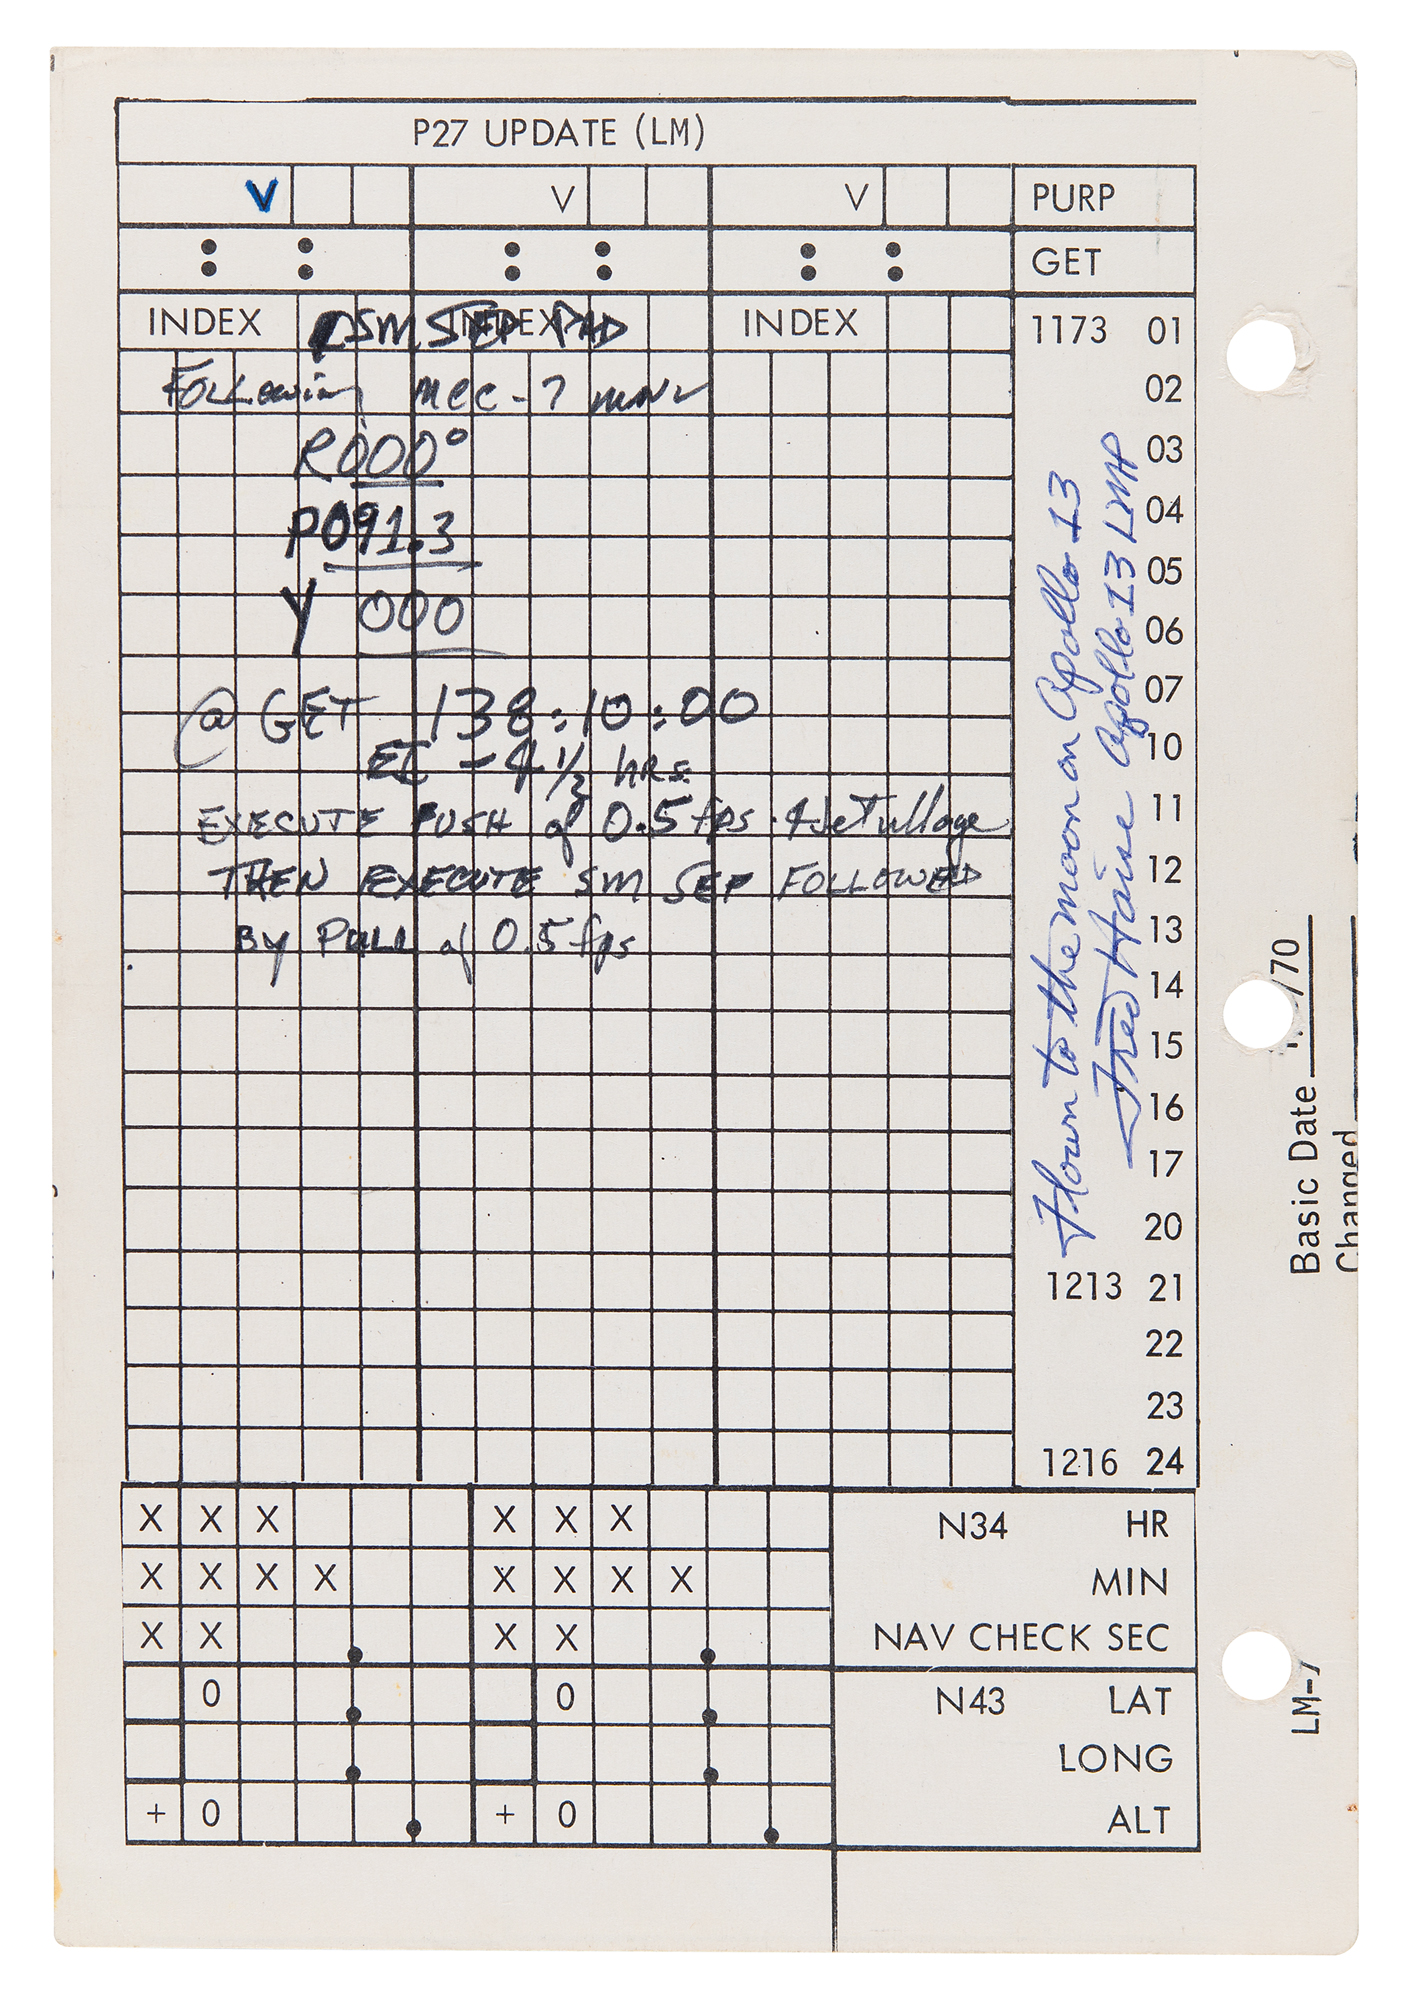 P27 UPDATE (LM)
V V V PURP
: : : : : : GET
INDEX INDEX INDEX 1173 01
SM SEP PAD
Following MCC-7 mnvr 02
R000° 03
P091.3 04
05
Y 000 06
07
@ GET 138:10:00
EI - 4 1/2 hrs 10
EXECUTE PUSH of 0.5 fps 4 jet ullage 11
THEN EXECUTE SM SEP FOLLOWED 12
BY PULL of 0.5 fps 13
14
15
16
17
20
1213 21
22
23
1216 24
X X X X X X N34 HR
X X X X X X X X MIN
X X . X X . NAV CHECK SEC
0 . 0 . N43 LAT
. . LONG
+ 0 . + 0 . ALT
Flown to the moon on Apollo 13
Fred Haise Apollo 13 LMP
Basic Date /70
Changed
LM-7